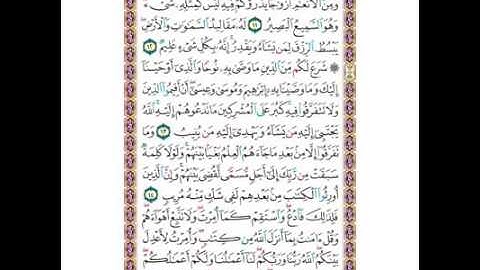 وَمِنَ الْأَنْعَامِ أَزْوَاجًا يَذْرَؤُكُمْ فِيهِ لَيْسَ كَمِثْلِهِ شَيْءٌ
وَهُوَ السَّمِيعُ الْبَصِيرُ ١١ لَهُ مَقَالِيدُ السَّمَاوَاتِ وَالْأَرْضِ
يَبْسُطُ الرِّزْقَ لِمَن يَشَاءُ وَيَقْدِرُ إِنَّهُ بِكُلِّ شَيْءٍ عَلِيمٌ ١٢
شَرَعَ لَكُم مِّنَ الدِّينِ مَا وَصَّىٰ بِهِ نُوحًا وَالَّذِي أَوْحَيْنَا
إِلَيْكَ وَمَا وَصَّيْنَا بِهِ إِبْرَاهِيمَ وَمُوسَىٰ وَعِيسَىٰ أَنْ أَقِيمُوا الدِّينَ
وَلَا تَتَفَرَّقُوا فِيهِ كَبُرَ عَلَى الْمُشْرِكِينَ مَا تَدْعُوهُمْ إِلَيْهِ اللَّهُ
يَجْتَبِي إِلَيْهِ مَن يَشَاءُ وَيَهْدِي إِلَيْهِ مَن يُنِيبُ ١٣ وَمَا
تَفَرَّقُوا إِلَّا مِن بَعْدِ مَا جَاءَهُمُ الْعِلْمُ بَغْيًا بَيْنَهُمْ وَلَوْلَا كَلِمَةٌ
سَبَقَتْ مِن رَّبِّكَ إِلَىٰ أَجَلٍ مُّسَمًّى لَّقُضِيَ بَيْنَهُمْ وَإِنَّ الَّذِينَ
أُورِثُوا الْكِتَابَ مِن بَعْدِهِمْ لَفِي شَكٍّ مِّنْهُ مُرِيبٍ ١٤
فَلِذَٰلِكَ فَادْعُ وَاسْتَقِمْ كَمَا أُمِرْتَ وَلَا تَتَّبِعْ أَهْوَاءَهُمْ
وَقُلْ آمَنتُ بِمَا أَنزَلَ اللَّهُ مِن كِتَابٍ وَأُمِرْتُ لِأَعْدِلَ
بَيْنَكُمُ اللَّهُ رَبُّنَا وَرَبُّكُمْ لَنَا أَعْمَالُنَا وَلَكُمْ أَعْمَالُكُمْ